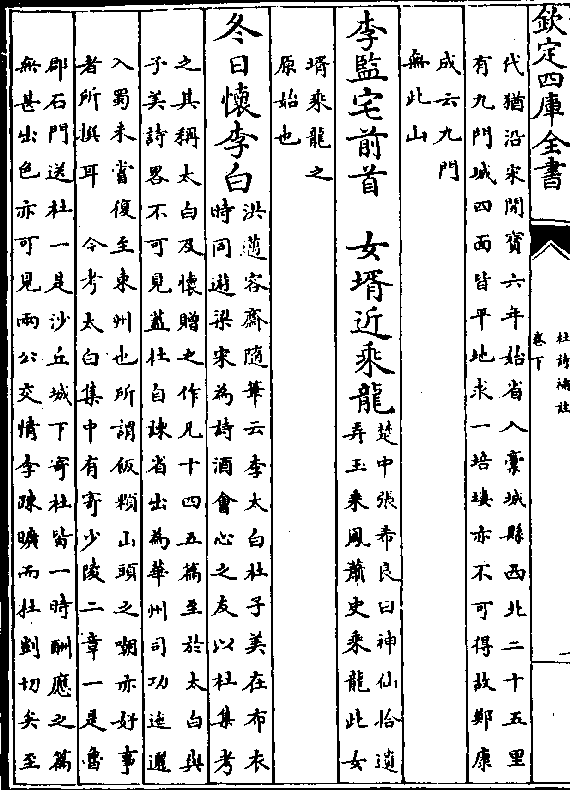 欽定四庫全書
杜詩補註
卷下
代猶沿宋開寶六年始省入藁城縣西北二十五里
有九門城四面皆平地求一培塿亦不可得故鄭康
成云九門
無此山
李監宅前首 女壻近乗龍
楚中張希良曰神仙恰遺
弄玉乗鳳蕭史乗龍此女
壻乗龍之
原始也
冬日懷李白
洪邁容齋随筆云李太白杜子美在布衣
時同遊梁宋為詩酒會心之友以杜集考
之其稱太白及懷贈之作凡十四五篇至於太白與
子美詩畧不可見蓋杜自諫省出為華州司功迤邐
入蜀未嘗復至東州也所謂飯顆山頭之嘲亦好事
者所撰耳 今考太白集中有寄少陵二章一是魯
郡石門送杜一是沙丘城下寄杜皆一時酬應之篇
無甚出色亦可見兩公交情李疎曠而杜剴切矣至